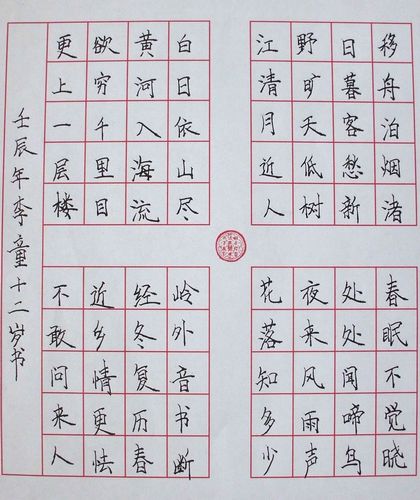 移舟泊烟渚
日暮客愁新
野旷天低树
江清月近人
白日依山尽
黄河入海流
欲穷千里目
更上一层楼
春眠不觉晓
处处闻啼鸟
夜来风雨声
花落知多少
岭外音书断
经冬复历春
近乡情更怯
不敢问来人
壬辰年李童十二岁书